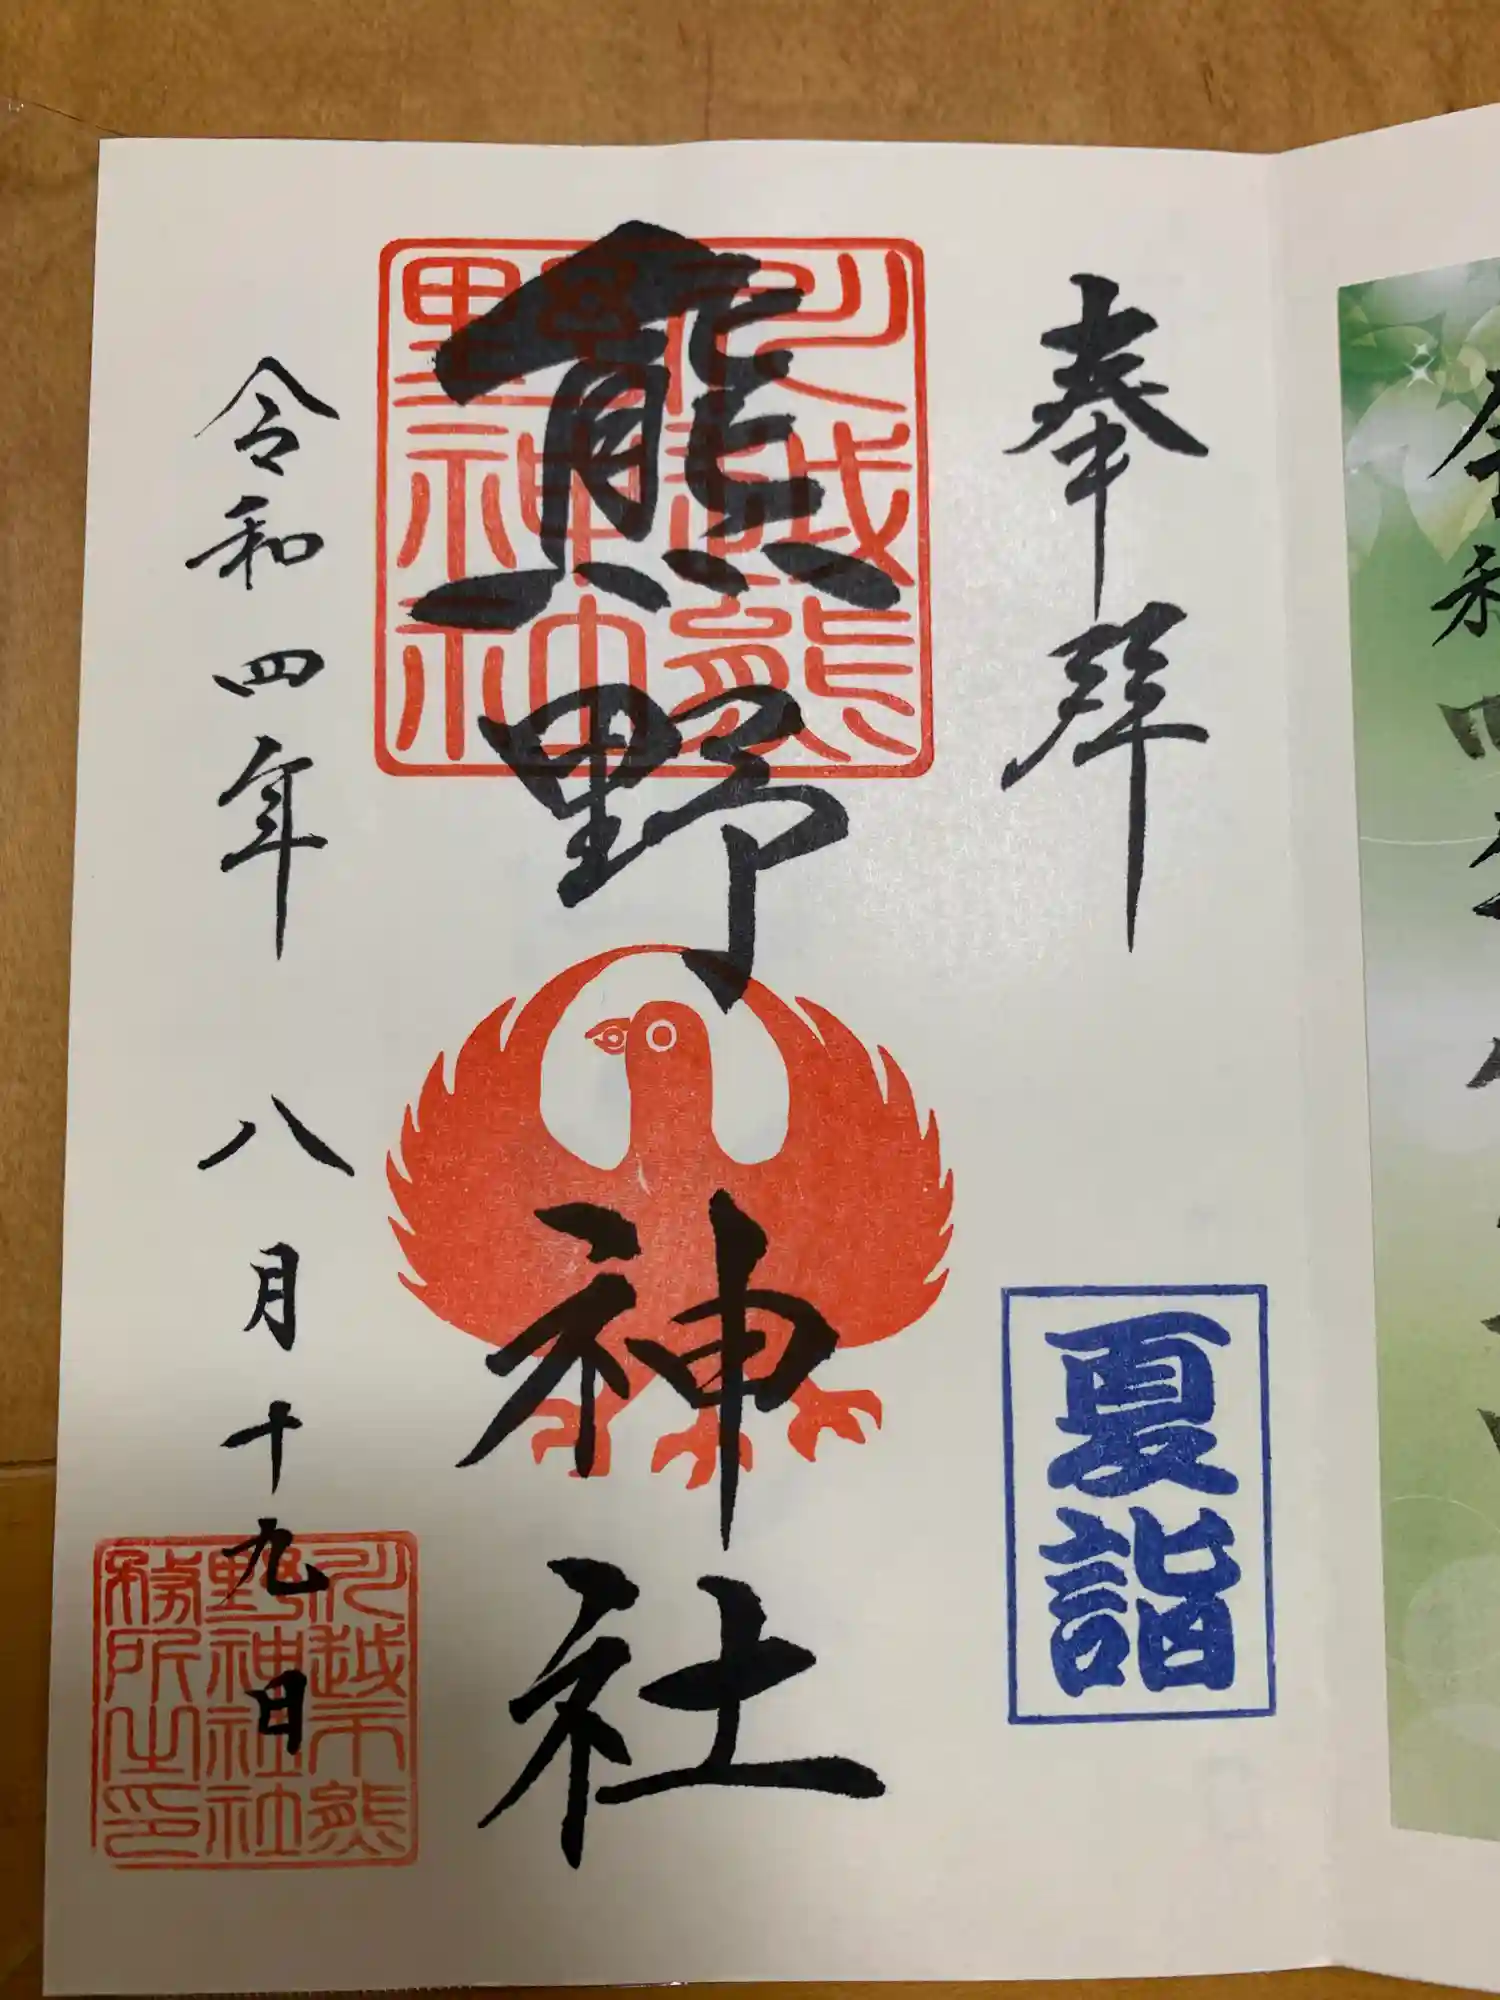 奉拝
夏詣
川越熊
野神社
熊野神社
令和四年 八月十九日
川越市熊
野神社社
務所之印
令和四年